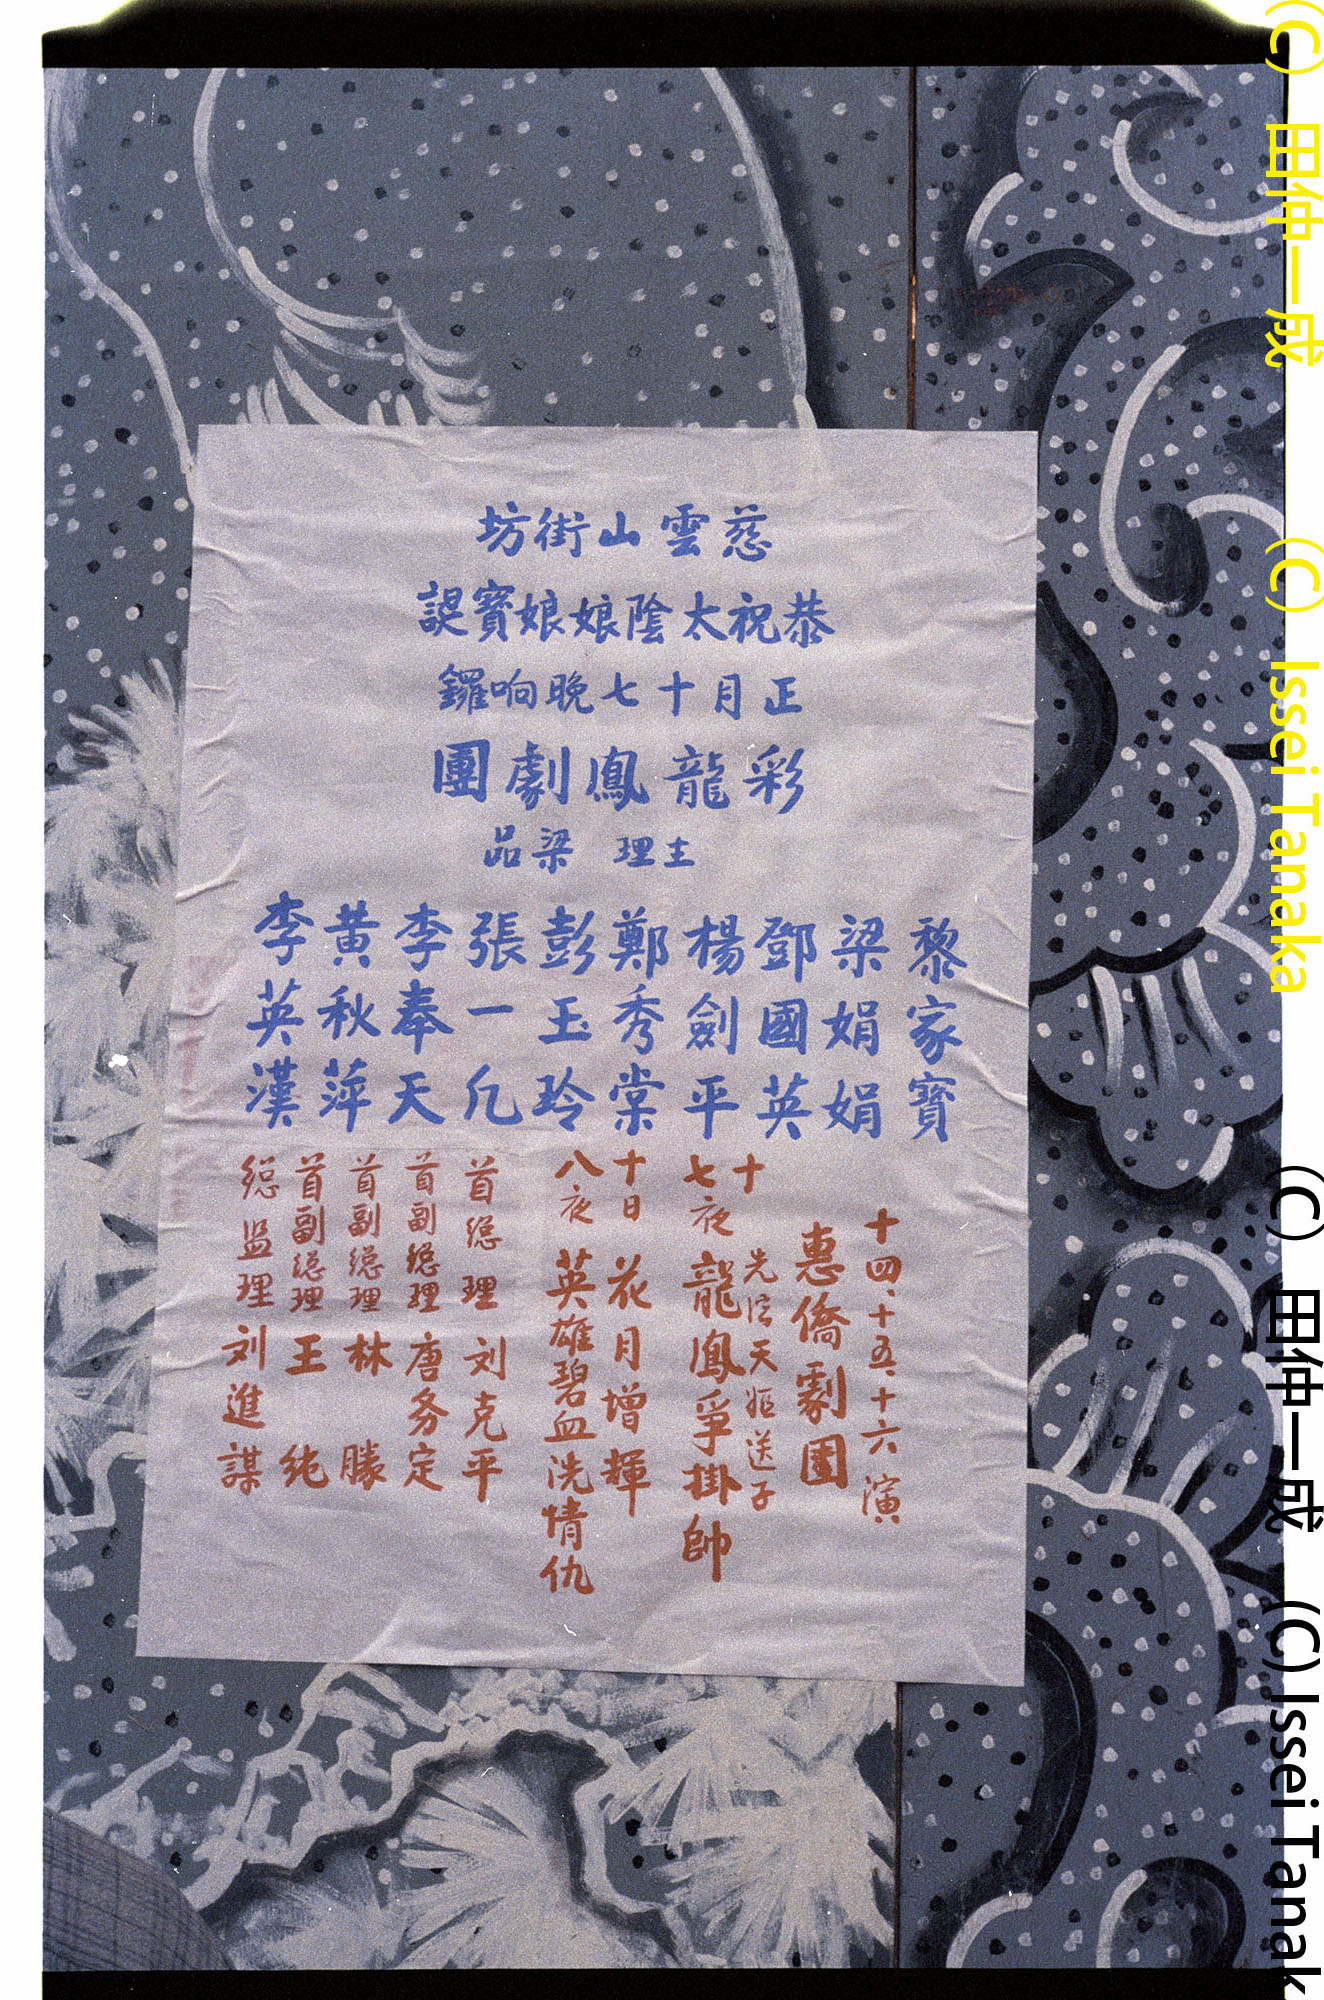 慈雲山街坊
恭祝太陰娘娘寶誕
正月十七晚响鑼
彩龍鳳劇團
主理 梁品
黎家寶
梁娟娟
鄧國英
楊劍平
鄭秀棠
彭玉玲
張一凡
李奉天
黃秋萍
李英漢
十四、十五、十六演
惠僑劇團
十七夜
先演天姬送子
龍鳳爭掛帥
十八
日 花月增輝
夜 英雄碧血洗情仇
首總理 刘克平
首副總理 唐务定
首副總理 林勝
首副總理 王純
總监理 刘進謀
(C) 田仲一成 (C) Issei Tanaka
(C) 田仲一成 (C) Issei Tanak